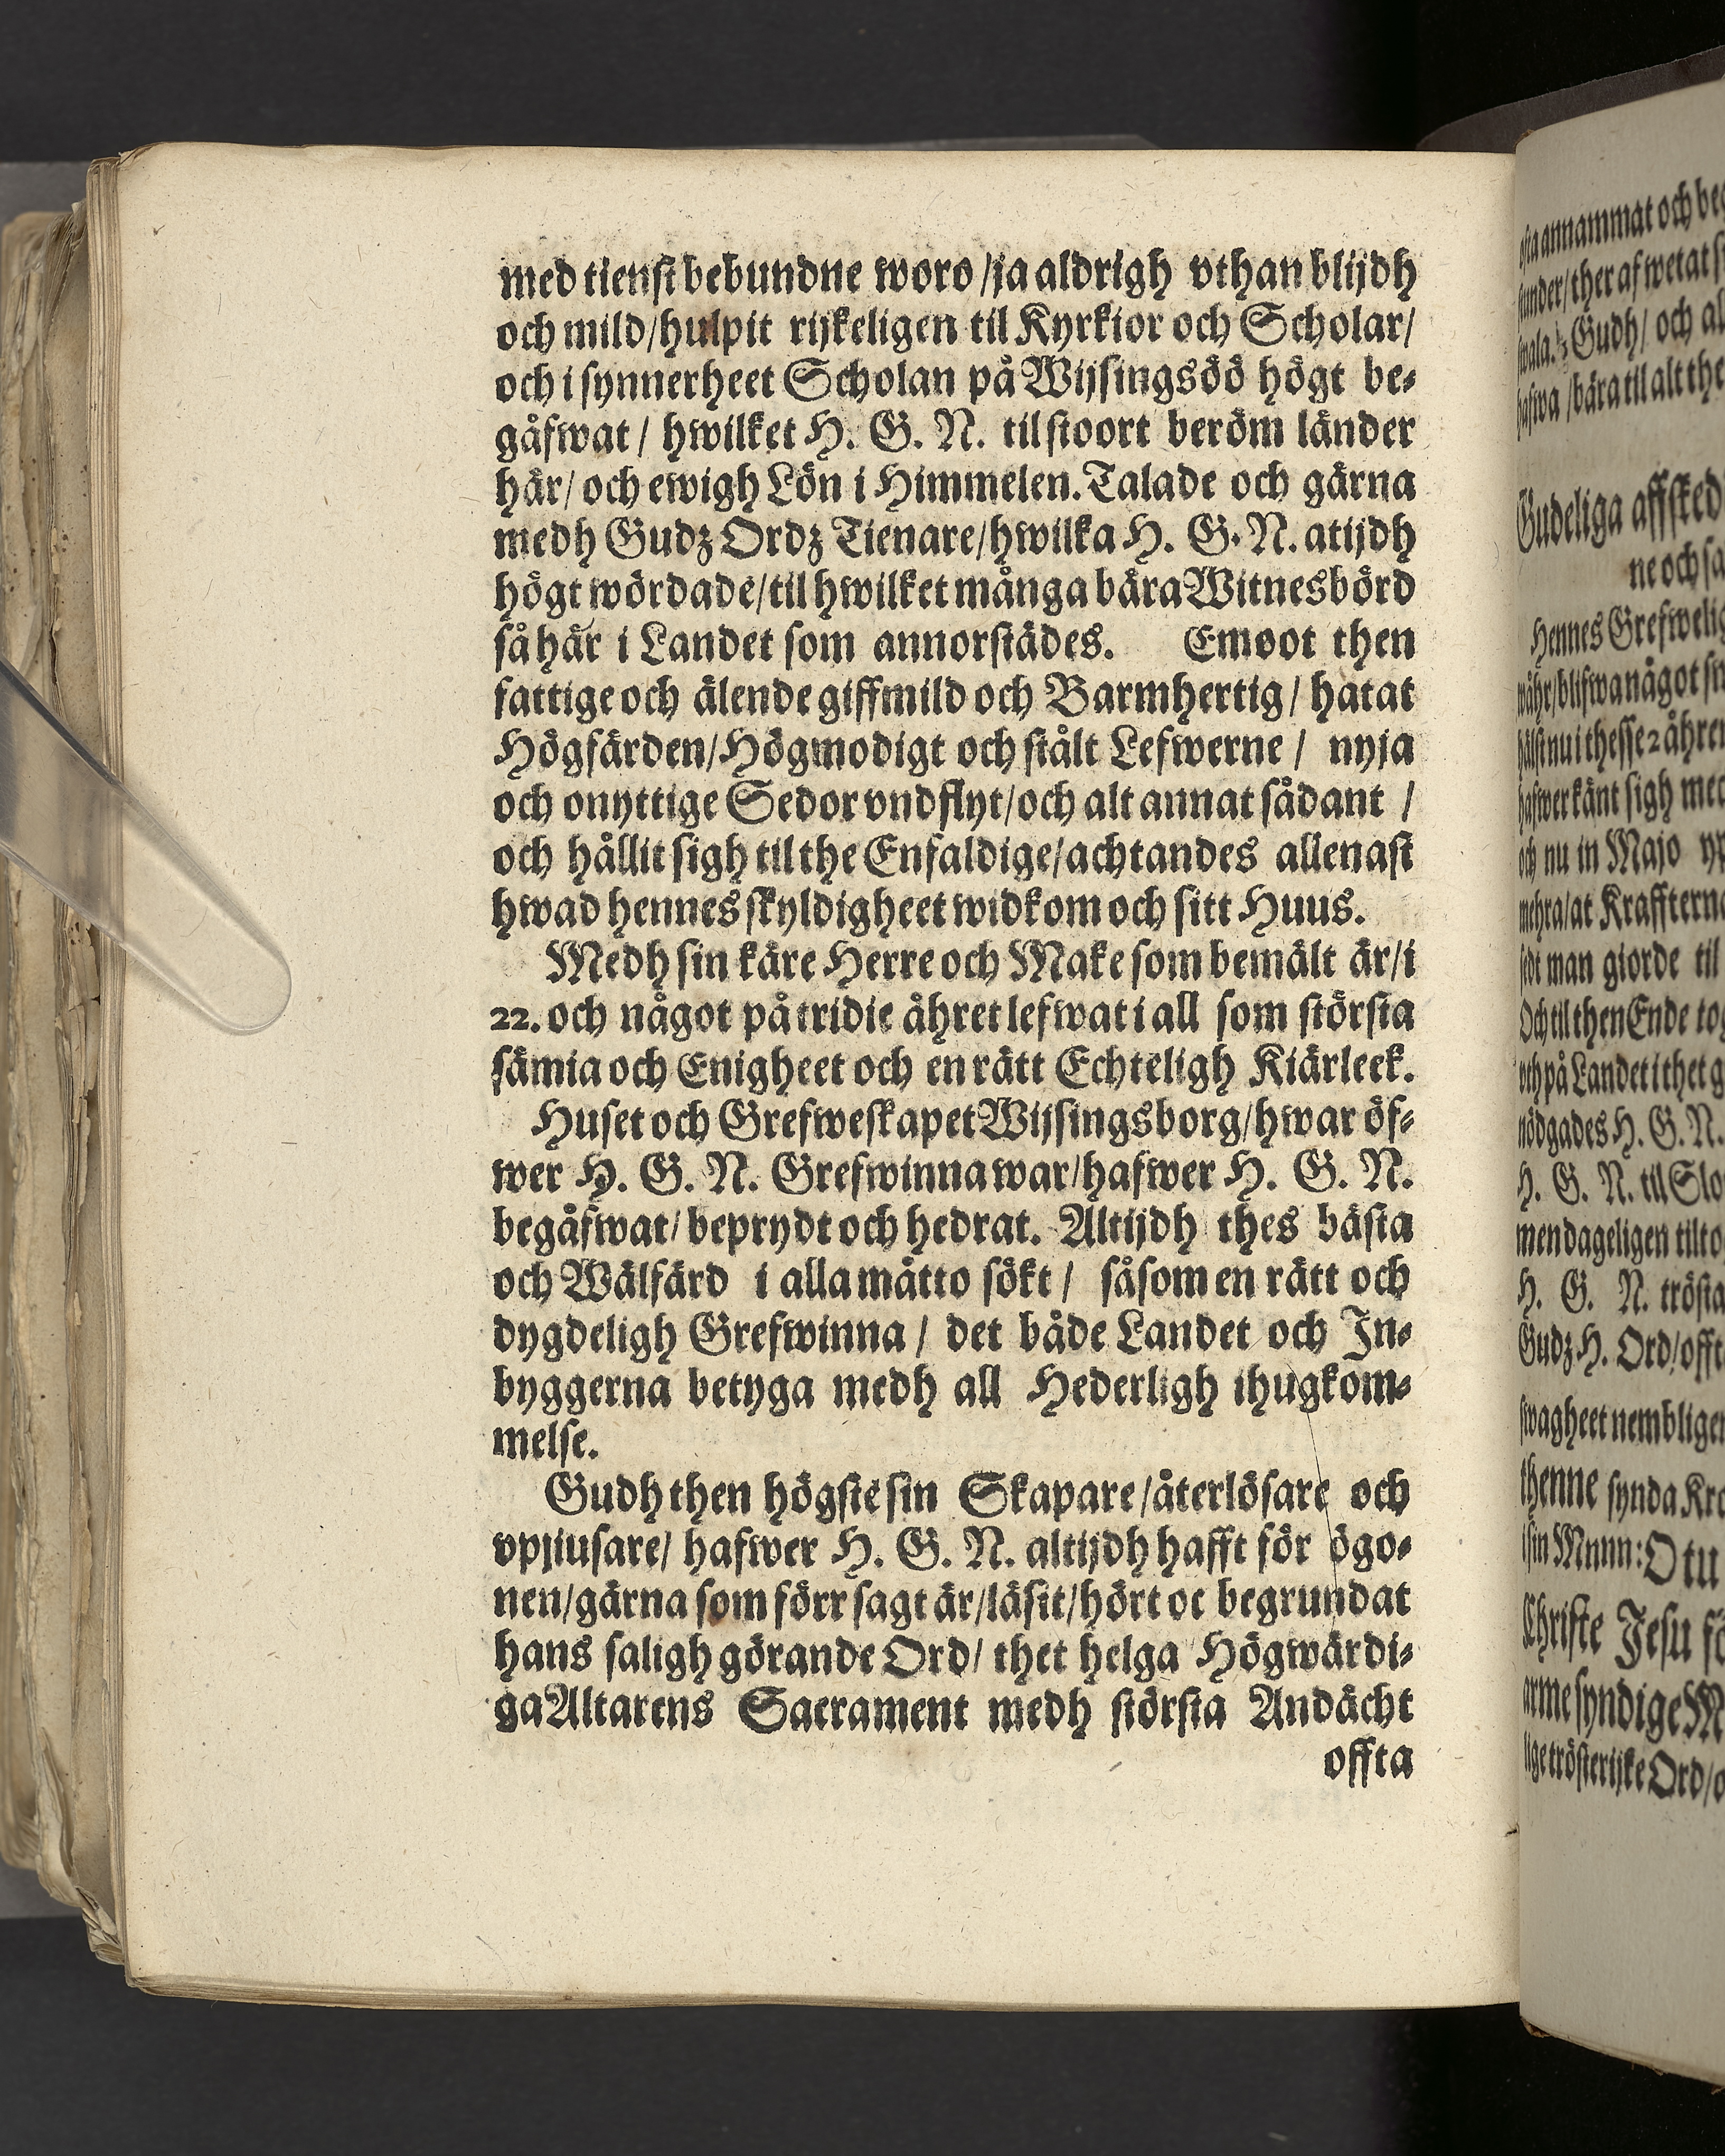 med tienst bebundne woro /ja aldrigh vthan blijdh
och mild/hulpit rijkeligen til Kyrkior och Scholar/
och i synnerheet Scholan på Wijsingsöö högt be-
gåfwat / hwilket H. G. N. til stoort beröm länder
här/ och ewigh Lön i Himmelen. Talade och gärna
medh Gudz Ordz Tienare/hwilka H. G. N. atijdh
högt wördade/til hwilket många bära Witnesbörd
så här i Landet som annorstädes. Emoot then
fattige och älende giffmild och Barmhertig / hatat
Högfärden/Högmodigt och stålt Lefwerne / nyja
och onyttige Sedor vndflyt/och alt annat sådant /
och hållit sigh til the Enfaldige/achtandes allenast
hwad hennes skyldigheet widkom och sitt Huus.
Medh sin käre Herre och Make som bemält är/i
22. och något på tridie åhret lefwat i all som största
sämia och Enigheet och en rätt Echteligh Kiärleek.
Huset och Grefweskapet Wijsingsborg/hwar öf-
wer H. G. N. Grefwinna war/hafwer H. G. N.
begåfwat/ beprydt och hedrat. Altijdh thes bästa
och Wälfärd i alla måtto sökt / såsom en rätt och
dygdeligh Grefwinna / det både Landet och In-
byggerna betyga medh all Hederligh ihugkom-
melse.
Gudh then högste sin Skapare/återlösare och
vpjiusare/ hafwer H. G. N. altijdh hafft för ögo-
nen/gärna som förr sagt är/läsit/hört oc begrundat
hans saligh görande Ord/ thet helga Högwärdi-
ga Altarens Sacrament medh största Andächt
offta
annammat och
ther af wetat
Gudh/ och
bära til alt the
Gudeliga affsked
ne och
Hennes
blifwa något
nu i thesse 2 åhren
känt sigh
och nu in Majo
at Kraffterna
man giorde til
Och til then Ende
och på Landet i thet
nödgades H. G. N.
H. G. N. til
men dageligen
H. G. N. trösta
Gudz H. Ord/offt
swagheet nembligen
thenne synda
sin Munn: O tu
Christe Jesu
arme syndige
trösterijke Ord/